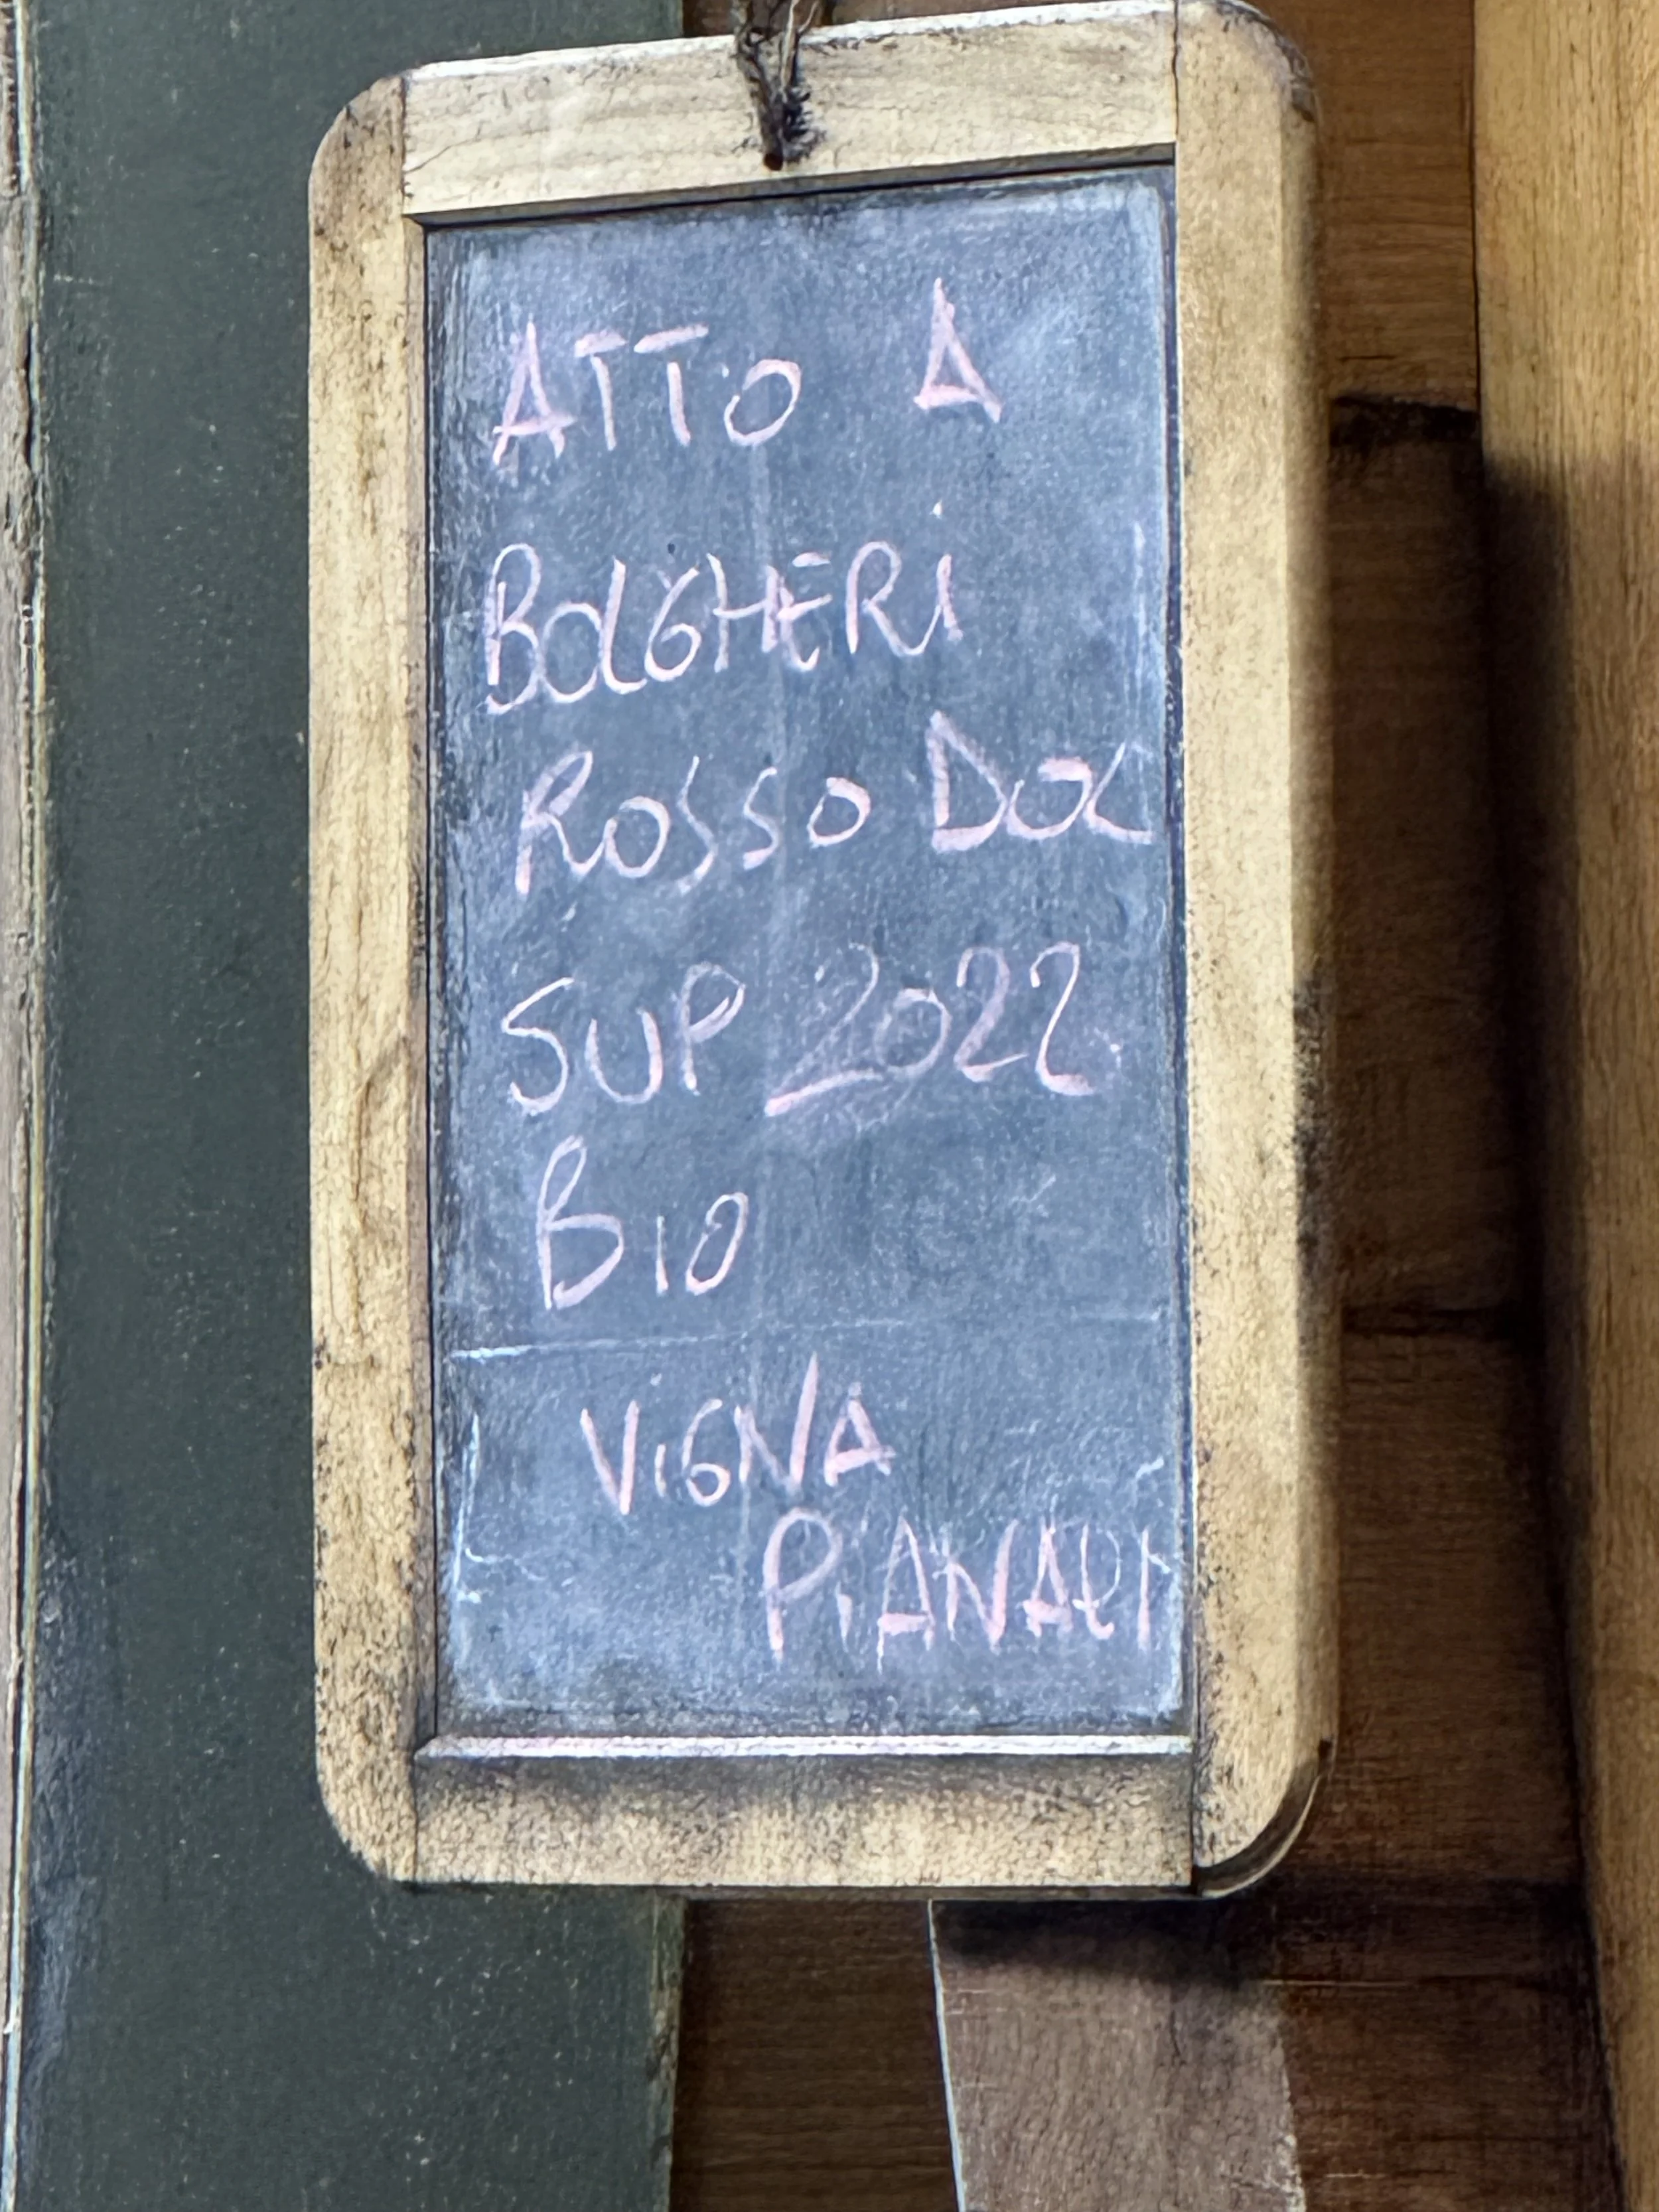 ATTO A
BOLGHERi
ROSSO DOC
SUP 2022
BIO
ViGNA
PiANARI